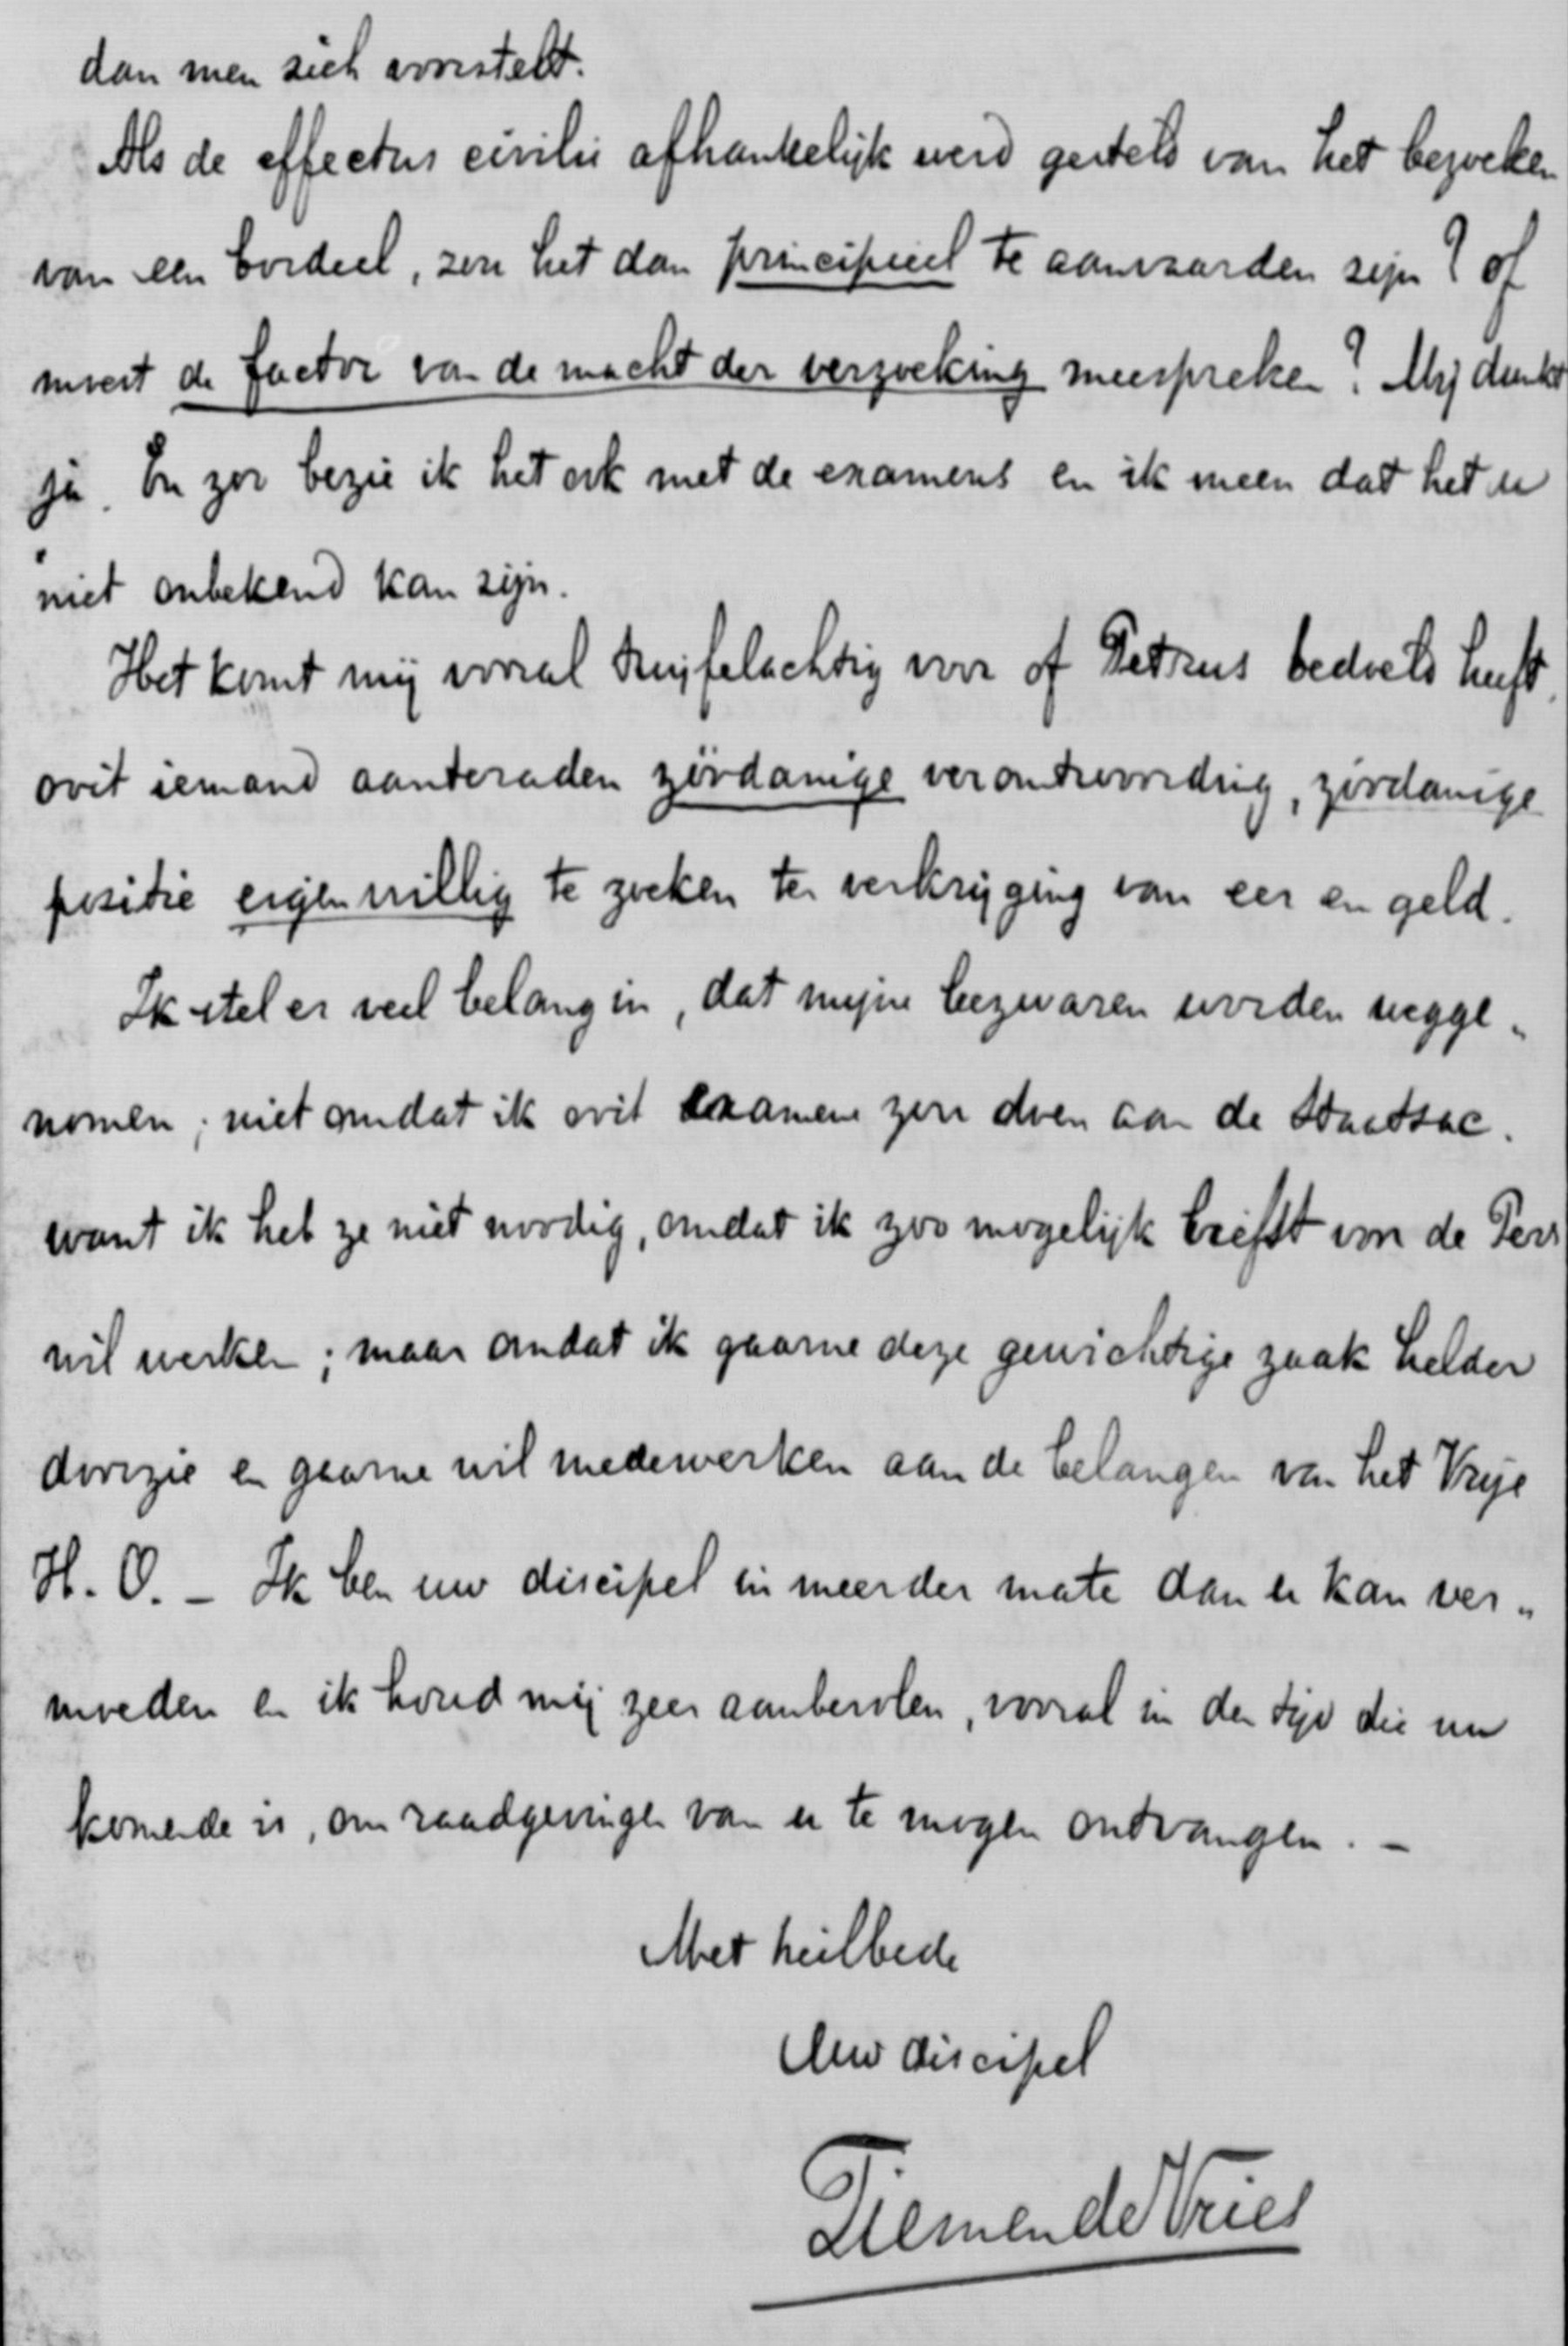 dan men zich voorstelt.
Als de effectus civilis afhankelijk werd gesteld van het bezoeken
van een bordeel, zou het dan principieel te aanvaarden zijn? of
moest de factor van de macht der verzoeking meespreken? Mij dunkt
ja. En zoo bezie ik het ook met de examens en ik meen dat het u
niet onbekend kan zijn.
Het komt mij vooral twijfelachtig voor of Petrus bedoeld heeft,
ooit iemand aanteraden zóódanige verantwoording, zóódanige
positie eigenwillig te zoeken ter verkrijging van eer en geld.
Ik stel er veel belang in, dat mijne bezwaren worden wegge„
nomen; niet omdat ik ooit examens zou doen aan de Staatsac.
want ik heb ze niet noodig, omdat ik zoo mogelijk liefst voor de Pers
wil werken; maar omdat ik gaarne deze gewichtige zaak helder
doorzie en gaarne wil medewerken aan de belangen van het Vrije
H. O. – Ik ben uw discipel in meerder mate dan u kan ver„
moeden en ik houd mij zeer aanbevolen, vooral in den tijd die nu
komende is, om raadgevingen van u te mogen ontvangen. –
Met heilbede
Uw discipel
Tiemen de Vries